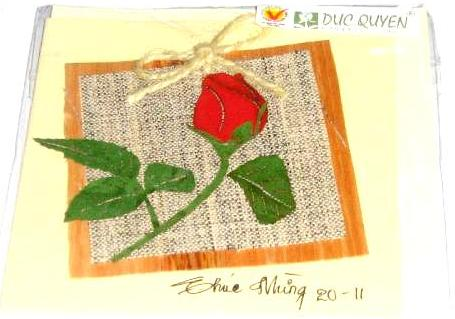 DUC QUYEN
Chúc Mừng 20-11